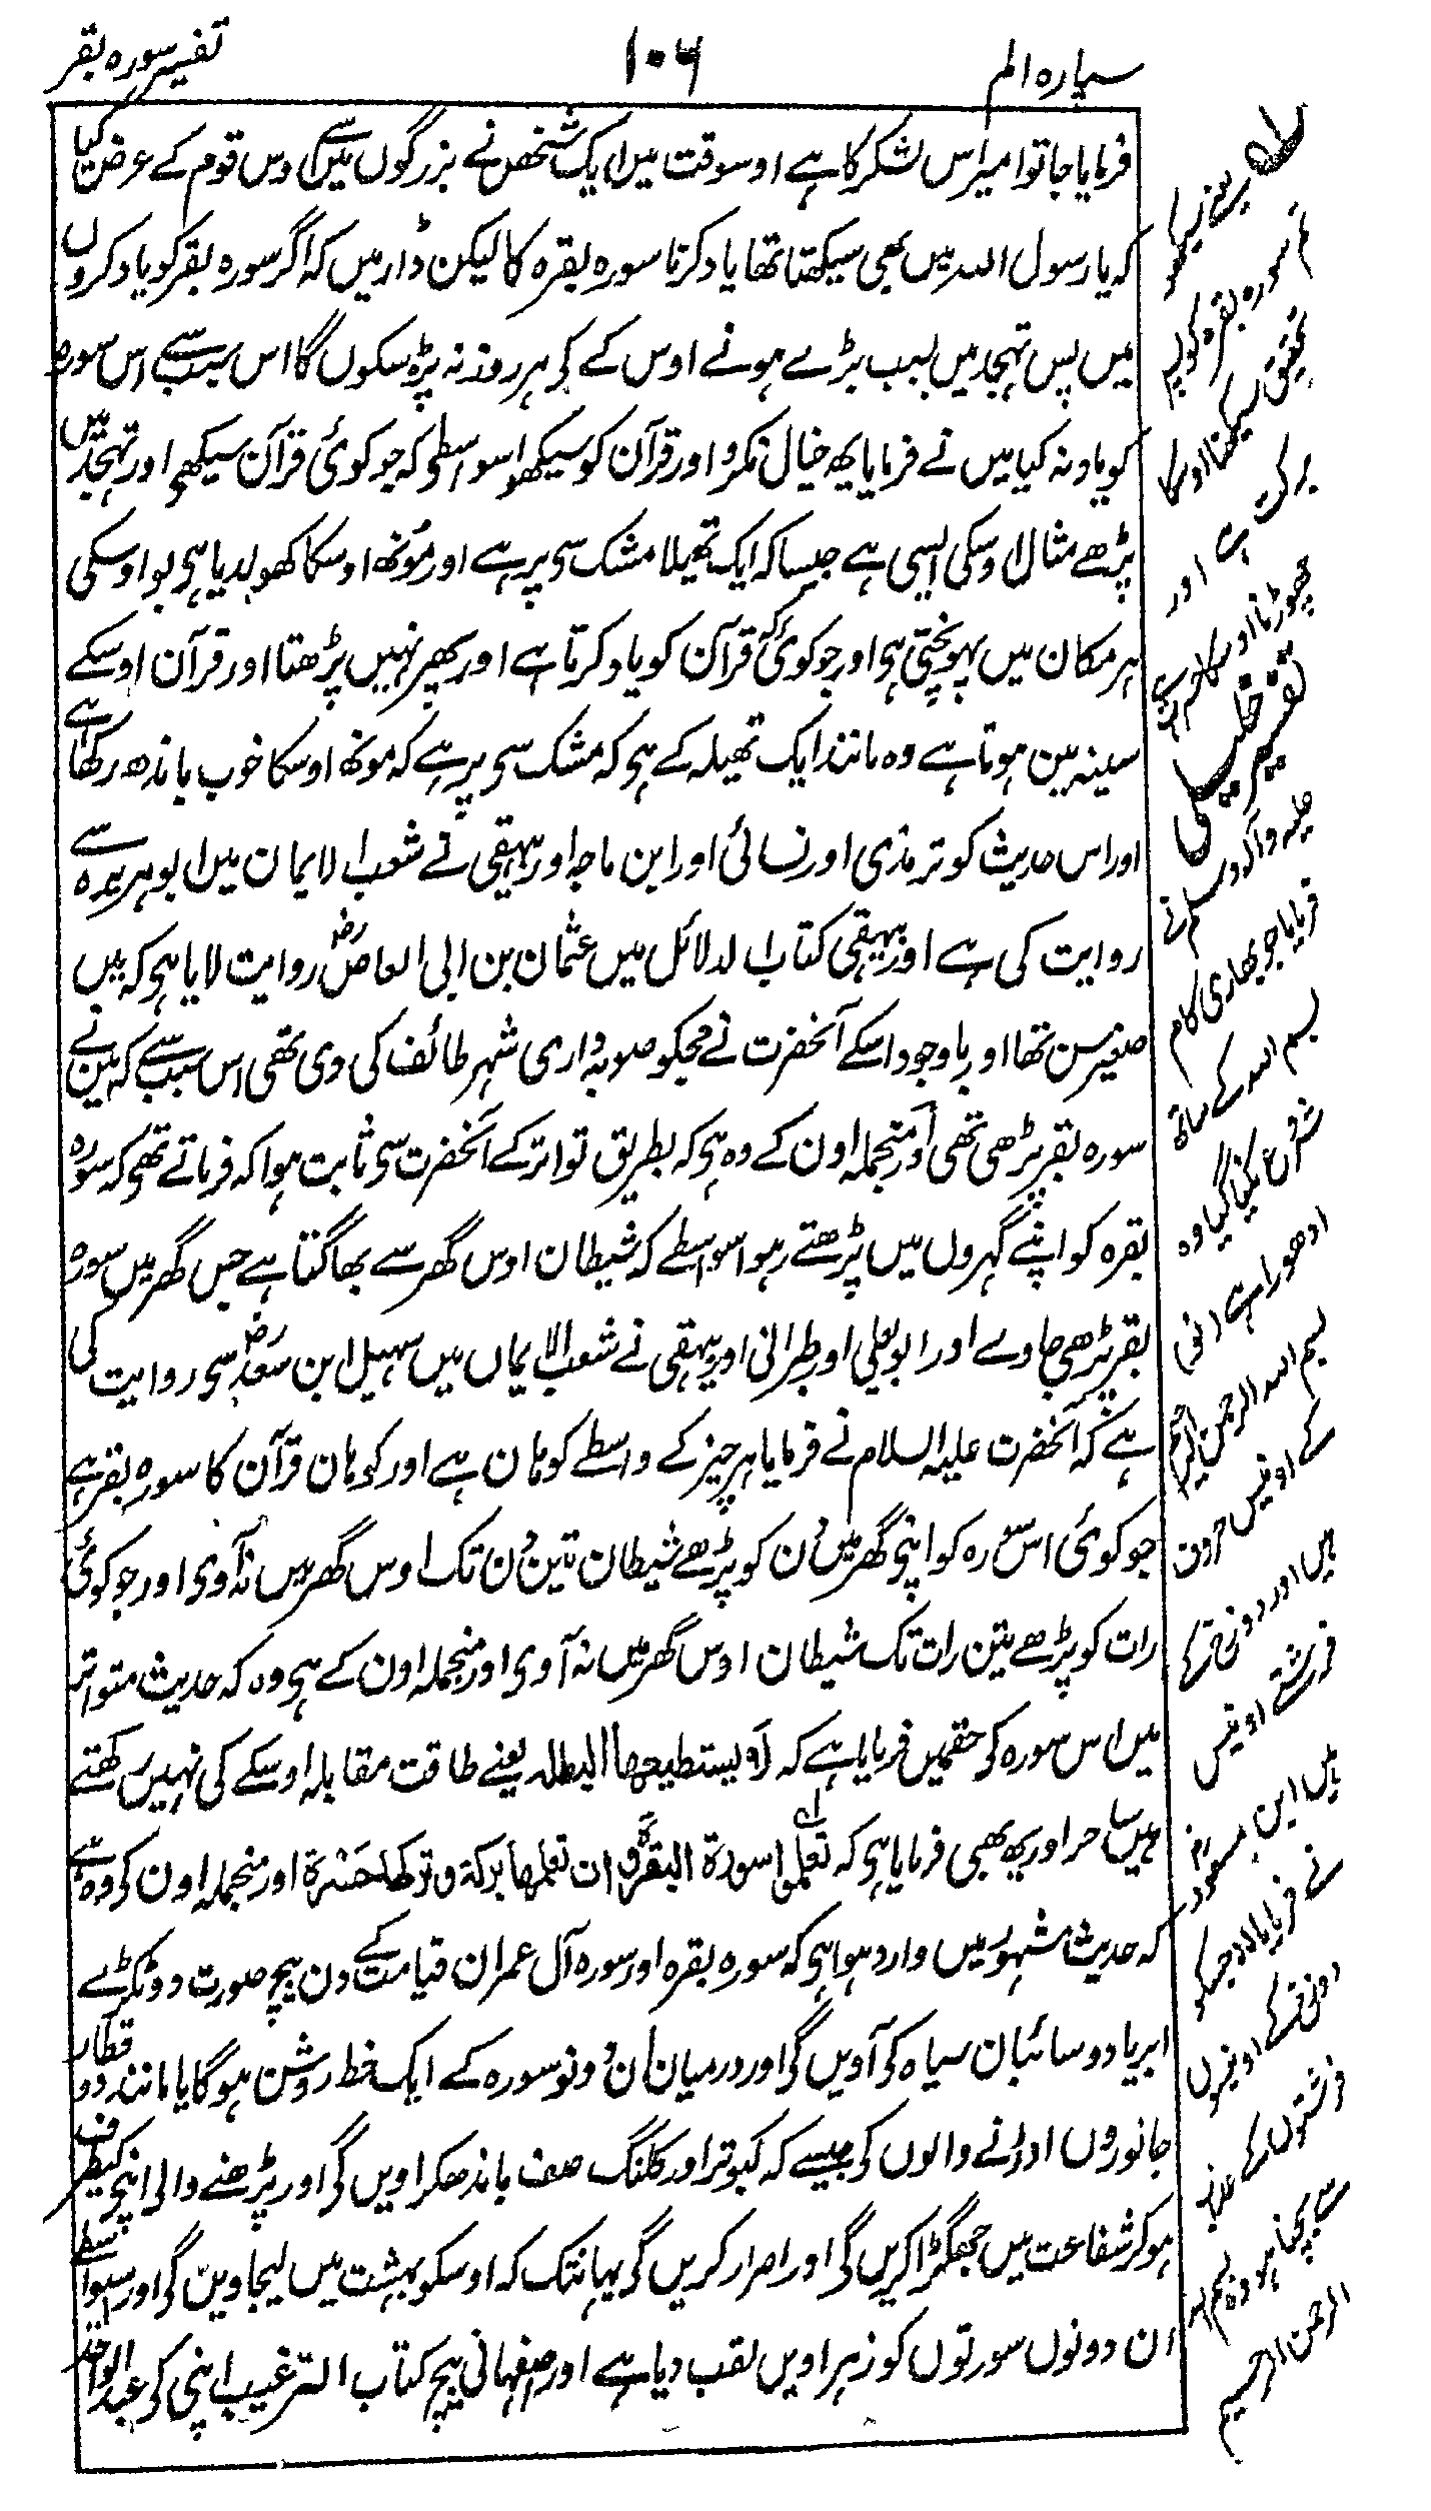 سیپاره الم
۱۰۶
تفسیر سوره بقر
فرمایا جا تو امیر اس لشکر کا ہے اوسوقت میں ایک شخص نے بزرگوں میں سے اوس قوم کے عرض کیا
کہ یا رسول اللہ میں بھی سیکھتا تھا یاد کرنا سوره بقره کا لیکن ڈرا میں کہ اگر سوره بقر کو یاد کروں
میں پس تہجد میں بسبب بڑے ہونے اوس کے کی ہر روز نہ پڑہ سکوں گا اس سبب سے اس سوره
کو یاد نہ کیا میں نے فرمایا یہ خیال نکرو اور قرآن کو سیکھو اسواسطی کہ جو کوئی قرآن سیکھی اور تہجد میں
پڑھے مثال اوسکی ایسی ہے جیسا کہ ایک تھیلا مشک سی پر ہے اور مونھ اوسکا کھولدیا ہی بو اوسکی
ہر مکان میں پہونچتی ہی اور جو کوئی کہ قرآن کو یاد کرتا ہے اور پھر نہیں پڑھتا اور قرآن اوسکے
سینہ مین ہوتا ہے وہ مانند ایک تھیلہ کے ہی کہ مشک سی پر ہے کہ مونھ اوسکا خوب باندھ رکھا ہے
اور اس حدیث کو ترمذی اور نسائی اور ابن ماجہ اور بیہقی نے شعب الایمان میں ابوہریره سے
روایت کی ہے اور بیہقی کتاب الدلائل میں عثمان بن ابی العاص رض روایت لایا ہی کہ میں
صغیر سن تھا اور باوجود اسکے آنحضرت نے مجکو صوبہ داری شہر طائف کی دی تھی اس سبب سے کہ مین نے
سوره بقر پڑھی تھی اور منجملہ اون کے وہ ہی کہ بطریق تواتر کے آنحضرت سی ثابت ہوا کہ فرماتے تھی کہ سوره
بقره کو اپنے گہروں میں پڑھتے رہو اسواسطے کہ شیطان اوس گھر سے بھاگتا ہے جس گھر میں سوره
بقر پڑھی جاوے اور ابویعلی اور طبرانی اور بیہقی نے شعب الایماں میں سہیل ابن سعد رض سی روایت کی
ہے کہ آنحضرت علیہ السلام نے فرمایا ہر چیز کے واسطے کوہان ہے اور کوہان قرآن کا سوره بقر ہے
جو کوئی اس سوره کو اپنی گھر میں دن کو پڑھے شیطان تین دن تک اوس گھر میں نہ آوی اور جو کوئی
رات کو پڑھے تین رات تک شیطان اوس گھر میں نہ آوی اور منجملہ اون کے ہی وہ کہ حدیث متواتر
میں اس سوره کی حقمیں فرمایا ہے کہ لا یستطیعھا البطلہ یعنے طاقت مقابلہ اوسکے کی نہیں رکھتے
ہیں ساحر اور یہ بھی فرمایا ہی کہ تعلموا سورۃ البقرۃ فان تعلمھا برکۃ وترکھا حسرۃ اور منجملہ اون کی وہ ہے
کہ حدیث مشہور میں وارد ہوا ہی کہ سوره بقره اور سوره آل عمران قیامت کے دن بیچ صورت دو ٹکڑے
ابر یا دو سائبان سیاه کی آویں گی اور درمیان ان دونو سوره کے ایک خط روشن ہوگا یا مانند دو قطار
جانوروں اوڑنے والوں کی جیسے کہ کبوتر اور کلنگ صف باندھکر اویں گی اور پڑھنے والی اپنی کیطرف
ہوکر شفاعت میں جھگڑا کریں گی اور اصرار کریں گی یہانتک کہ اوسکو بہشت میں لیجاویں گی اور اسیواسطے
ان دونوں سورتوں کو زہراویں لقب دیا ہے اور اصفہانی بیچ کتاب الترغیب اپنی کی عبدالواحد
تحقیق سیکھنا اوسکا
برکت ہے اور
چھوڑنا اوسکا
فرمایا جو بھاری کام
بسم اللہ کے ساتھ
شروع نکیا گیا وہ
ادھورا ہے
بسم اللہ الرحمن الرحیم
کے اونیس حرف
ہیں اور دوزخ کے
فرشتے اونیس
ہیں ابن مسعود
نے فرمایا
دوزخ کے اونیس
فرشتوں کے عذاب
سے بچنا
الرحمن الرحیم